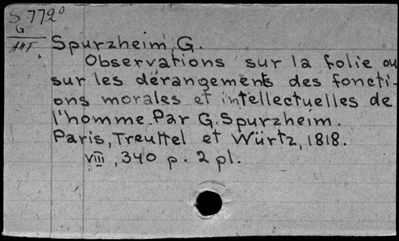 S 772°
G
ANT
Spurzheim, G.
Observations sur la folie ou
sur les dérangements des foncti-
ons morales et intellectuelles de
l'homme. Par G. Spurzheim.
Paris, Treuttel et Würtz, 1818.
VIII, 340 p. 2 pl.